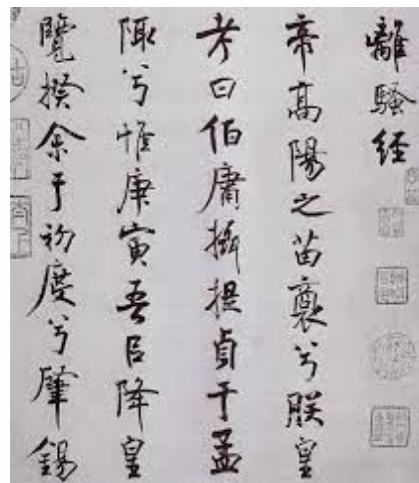 離騷经
帝高陽之苗裔兮朕皇
考曰伯庸攝提貞于孟
陬兮惟庚寅吾㠯降皇
覽揆余于初度兮肇錫